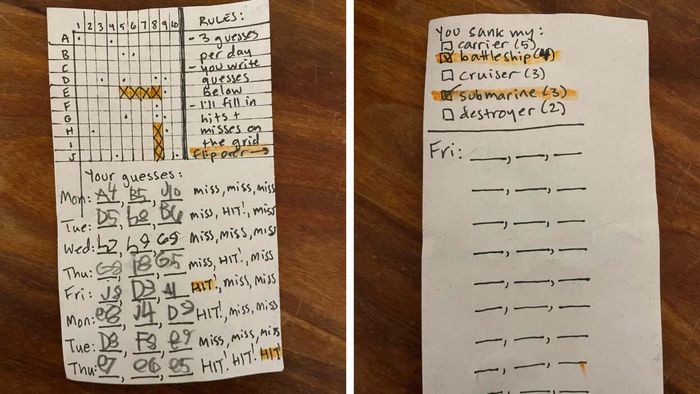 1 2 3 4 5 6 7 8 9 10
A
B
C
D
E
F
G
H
I
J
RULES:
- 3 guesses
per day
- you write
guesses
below
- I'll fill in
hits +
misses on
the grid
Flip over →
Your guesses:
Mon: A4, B5, J10 miss, miss, miss
Tue: D5, h8, B6 miss, HIT!, miss
Wed: h8, G8 miss, miss, miss
Thu: G8, I8, G5 miss, HIT!, miss
Fri: J8, D3, A1 HIT!, miss, miss
Mon: e8, J4, D9 HIT!, miss, miss
Tue: D8, F8, e9 miss, miss, miss
Thu: e7, e6, e5 HIT! HIT! HIT
You sank my:
carrier (5)
battleship (4)
cruiser (3)
submarine (3)
destroyer (2)
Fri: